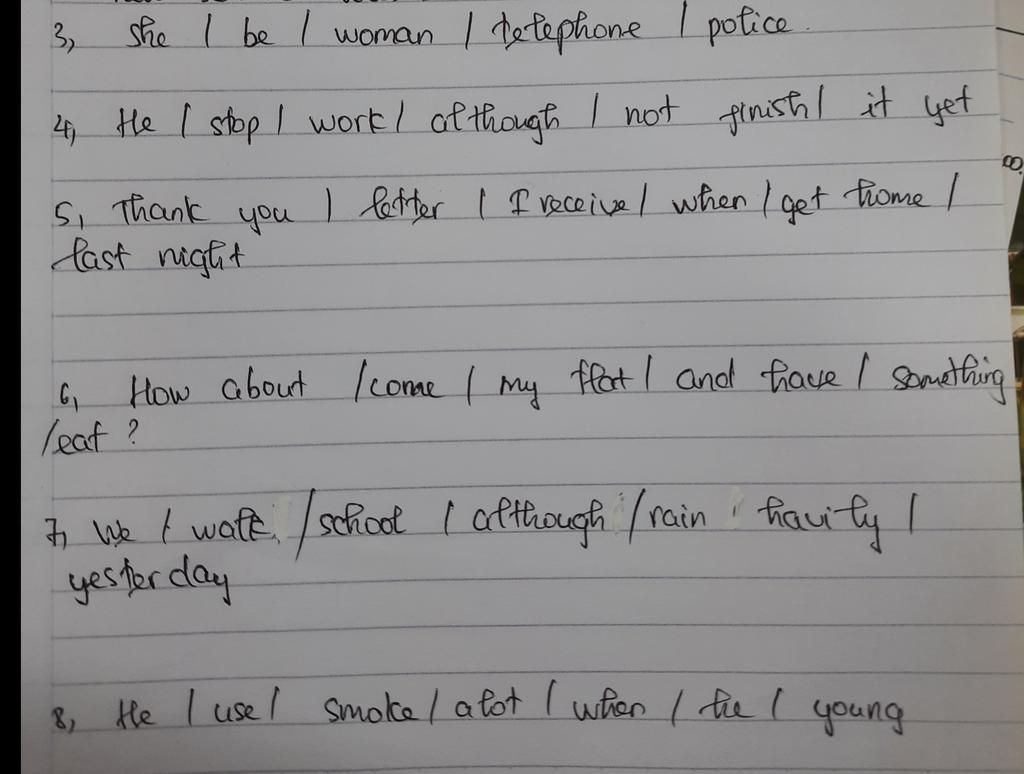 3, She / be / woman / telephone / police.
4, He / stop / work / although / not finish / it yet
5, Thank you / letter / I receive / when / get home /
last night
6, How about / come / my flat / and have / something
/eat ?
7, We / walk / school / although / rain havily /
yesterday
8, He / use / smoke / alot / when / he / young